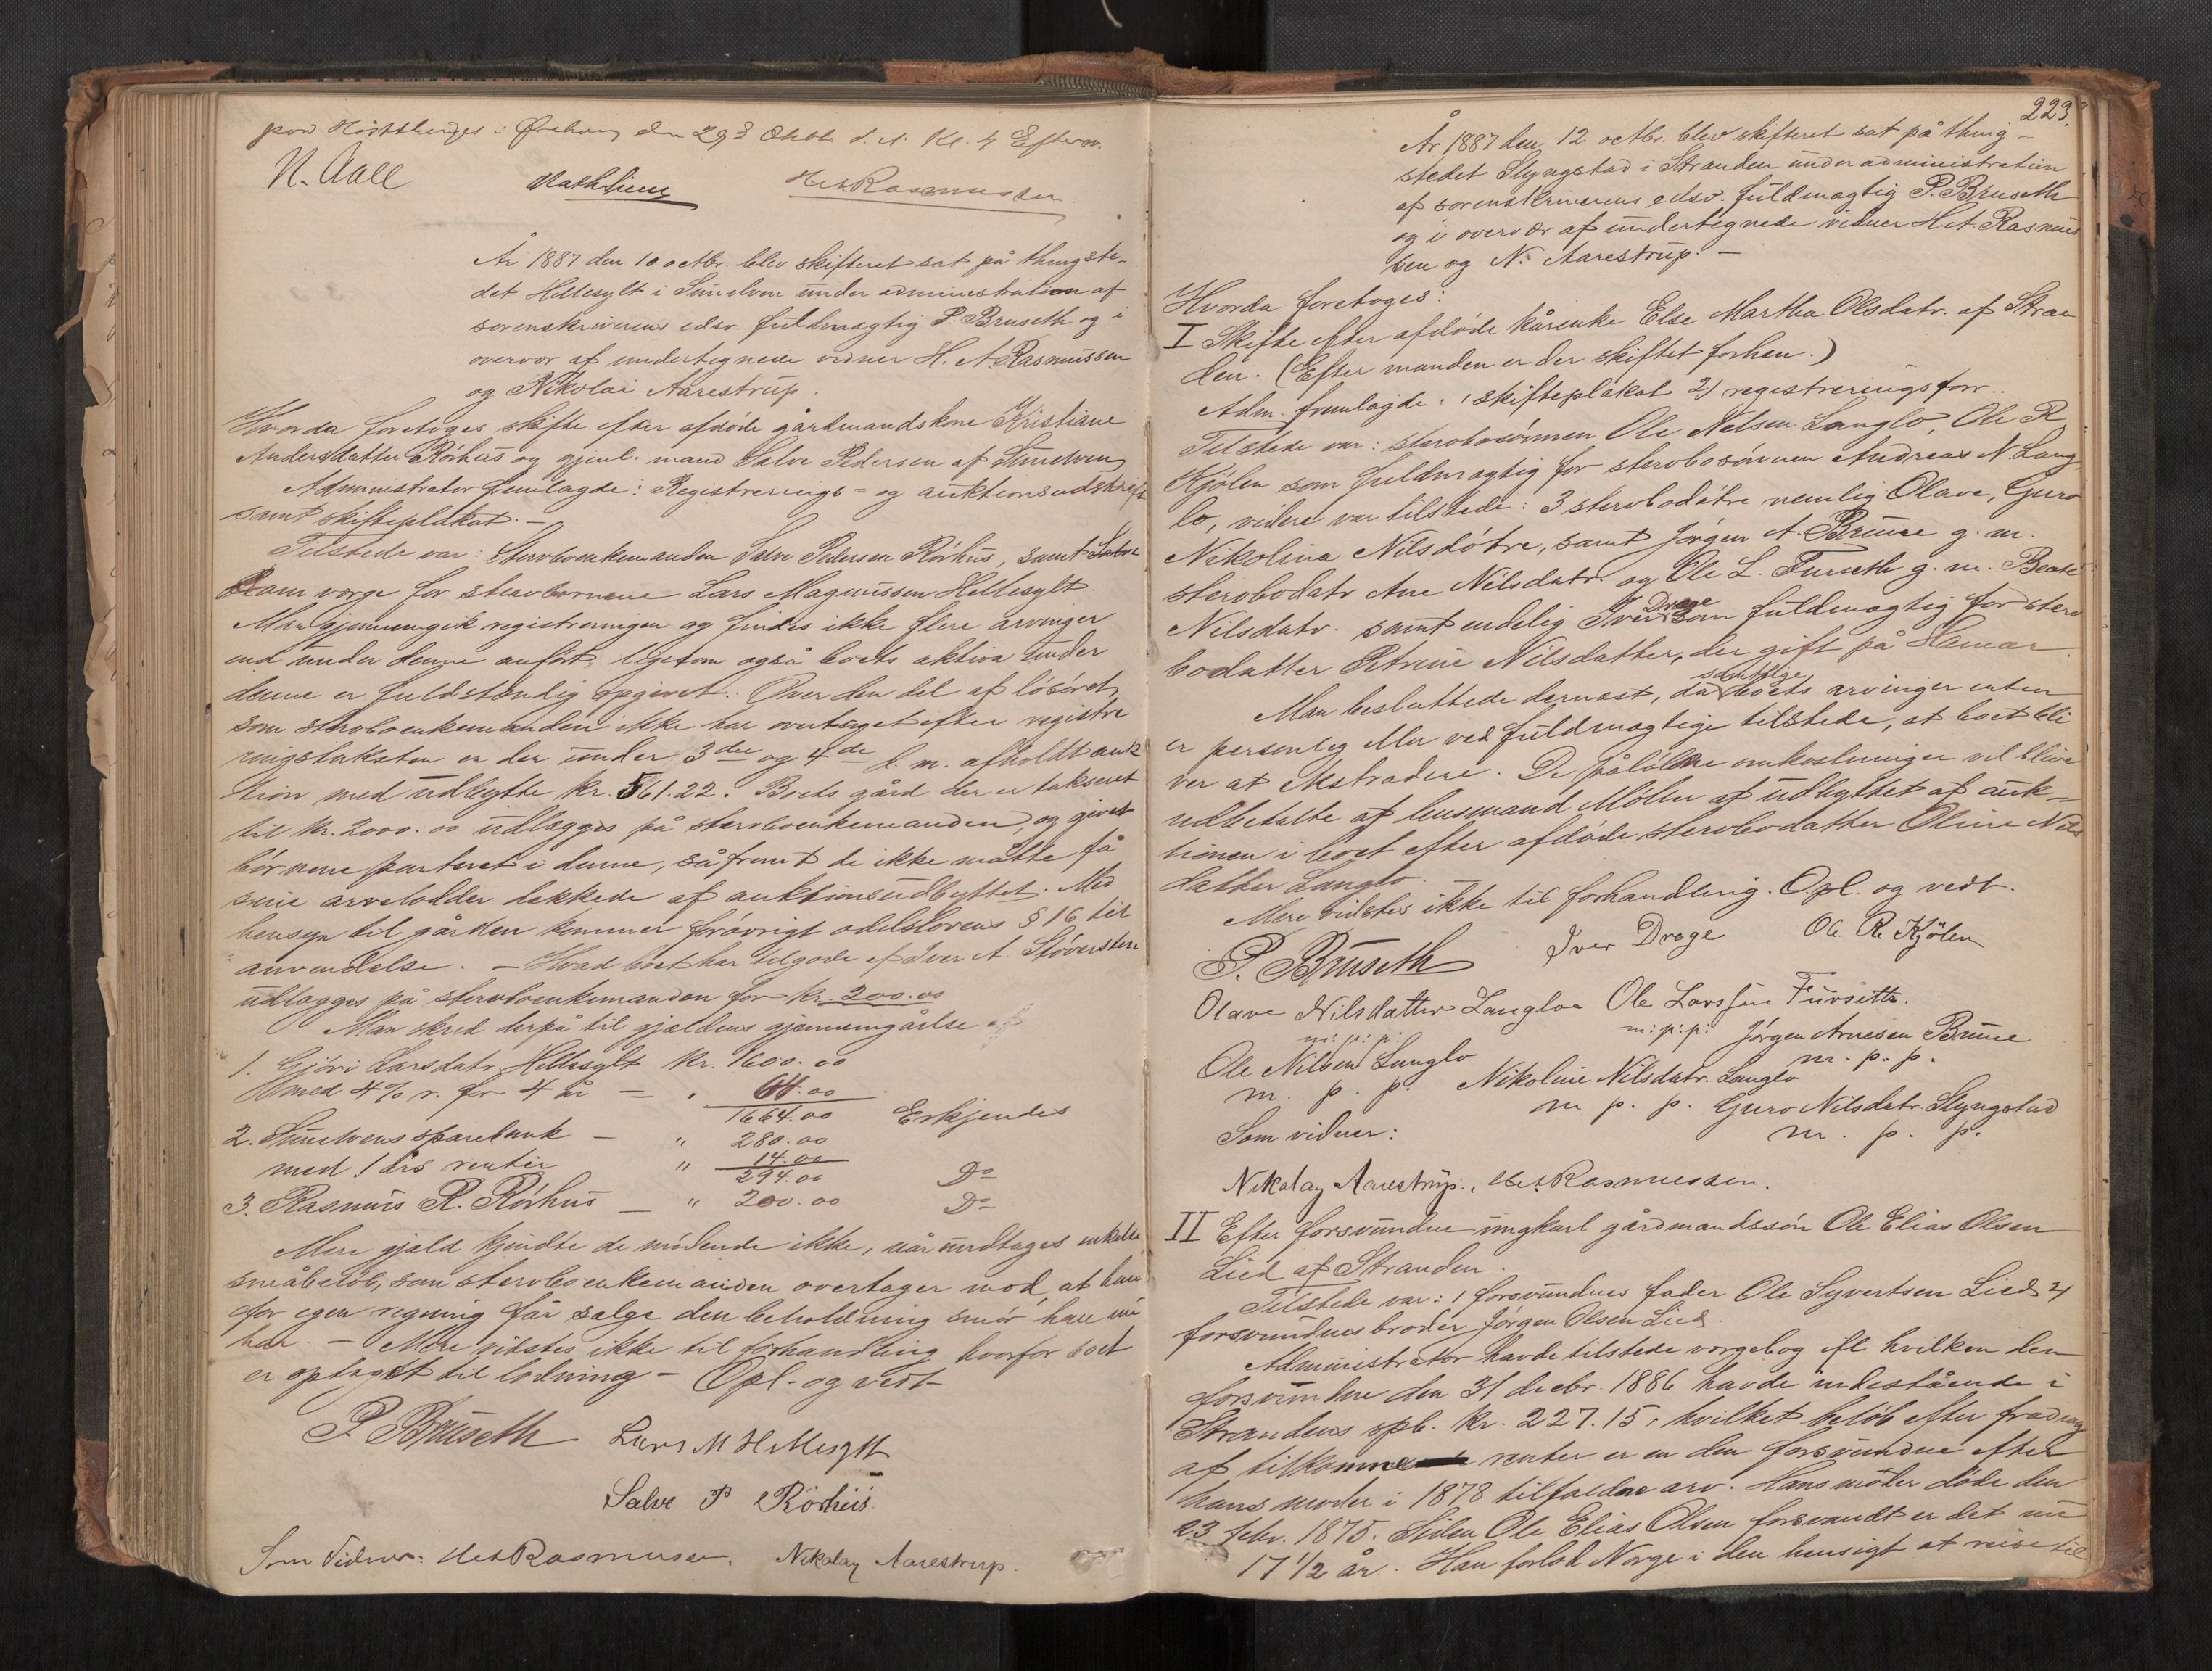 paa i Ørskoug den 29d Oktbr d. A. Kl. 4 Efterm.
N. Aall Mathsieng Het Rasmussen
År 1887 den 10 octbr. blev skifteret sat på thingste-
det Hellesylt i Sunelven under administration af
sorenskriverens edsv. fuldmægtig P. Bruseth og i
overvær af undertegnede vidner H. A. Rasmussen
og Nikolai Aarestrup.
Hvorda foretoges skifte efter afdøde gårdmandskone Kristiane
Andersdatter Rørhus og gjenl. mand Salve Pedersen af Sunelven
Administrator fremlagde: Registrerings- og auktionsudskrift
samt skifteplakat. —
Tilstede var: Stervboenkemanden Salve Pedersen Rørhus, samt
som værge for stervbørnene Lars Magnussen Hellesylt
Man gjennemgik registreringen og findes ikke flere arvinger
end under denne anført, ligesom også boets aktiva under
denne er fuldstændig opgivet. Over den del af løsøret,
som stervboenkemanden ikke har overtaget efter registre
ringstaksten er der under 3die og 4de d. m. afholdt auk
tion med udbytte kr. 561.22. Boets gård der er takseret
til kr. 2000.00 udlægges på stervboenkemanden, og gives
børnene panteret i denne, såfremt de ikke måtte få
sine arvelodder dækkede af auktionsudbyttet. Med
hensyn til gården kommer forøvrigt odelslovens § 16 til
anvendelse. — Hvad boet har tilgode af Iver A. Støversten
udlægges på stervboenkemanden for kr. 200.00
Man skred derpå til gjældens gjennemgåelse
1. Gjøri Larsdatr. Hellesylt kr. 1600.00
med 4% r. for 4 år — " 64.00
1664.00 Erkjendes
2. Sunelvens sparebank — " 280.00
med 1 års renter " 14.00
294.00 Do
3. Rasmus R. Rørhus — " 200.00 Do
Mere gjæld kjendte de mødende ikke, når undtages enkelte
småbeløb, som stervboenkemanden overtager mod, at han
for egen regning får sælge den beholdning smør han nu
har. — Mere vidstes ikke til forhandling hvorfor boet
er optaget til lodning — Opl. og vedt.
P. Bruseth Lars M Hellesylt
Salve P Rörhus.
Som Vidner: Het Rasmussen. Nikolay Aarestrup.
223.
År 1887 den 12 octbr. blev skifteret sat på thing-
stedet Slyngstad i Stranden under administration
af sorenskriverens edsv. fuldmægtig P. Bruseth
og i overvær af undertegnede vidner H. A. Rasmus
sen og N. Aarestrup. —
Hvorda foretoges:
I Skifte efter afdøde kårenke Else Martha Olsdatr. af Stran
den. (Efter manden er der skiftet forhen.)
Adm. fremlagde: 1 skifteplakat 2) registreringsforr..
Tilstede var: stervbosønnen Ole Nilsen Langlo, Ole R
Kjølen som fuldmægtig for stervbosønnen Andreas N. Lang
lo, videre var tilstede: 3 stervbodøtre nemlig Olave, Guro
Nikolina Nilsdøtre, samt Jørgen A. Brune g. m.
stervbodatr Ane Nilsdatr. og Ole L. Furseth g. m. Beate
Nilsdatr. samt endelig Iver Drege som fuldmægtig for sterv
bodatter Petrine Nilsdatter, der gift på Hamar.
Man besluttede dernæst, da samtlige boets arvinger enten
er personlig eller ved fuldmægtige tilstede, at boet bli
ver at ekstradere. De påløbne omkostninger vil blive
udbetalte af lensmand Møller af udbyttet af auk-
tionen i boet efter afdøde stervbodatter Oline Nils
datter Langlo.
Mere vidstes ikke til forhandling. Opl. og vedt.
P. Bruseth Iver Drege Ole R. Kjölen
Olave Nilsdatter Langloe Ole Larssen Fursette.
m: p: p: m: p: p: Jørgen Arnesen Brune
Ole Nilsen Langlo m. p. p.
m. p. p. Nikoline Nilsdatr. Langlo
m p. p. Guro Nilsdatr. Slyngstad
Som vidner: m. p. p.
Nikolay Aarestrup., Het Rasmussen.
II Efter forsvundne ungkarl gårdmandssøn Ole Elias Olsen
Lied af Stranden.
Tilstede var: 1 forsvundnes fader Ole Syvertsen Lied 2)
forsvundnes broder Jørgen Olsen Lied.
Administrator havde tilstede værgebog ifl hvilken den
forsvundne den 31 decbr. 1886 havde indestående i
Strandens spb. kr. 227.15, hvilket beløb efter fradrag
af tilkomne renter er en den forsvundne efter
hans moder i 1878 tilfalden arv. Hans moder døde den
23 febr. 1875. Siden Ole Elias Olsen forsvandt er det nu
17 1/2 år. Han forlod Norge i den hensigt at reise til